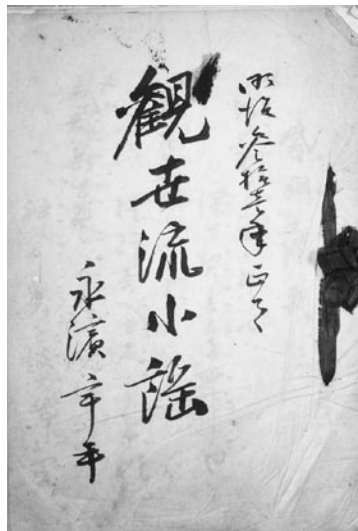 明治参拾壱年正月
観世流小謡
永濱宇平